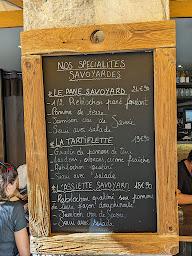 NOS SPÉCIALITÉS
SAVOYARDES
LE PANÉ SAVOYARD
- 1/2 Reblochon pané fondant
Pomme de terre
- Jambon cru de Savoie
- Servi avec salade
LA TARTIFLETTE 19€90
- Gratin de pommes de terre
lardons, oignons, crème fraîche
- Reblochon gratiné
- Servi avec salade
L'ASSIETTE SAVOYARDE
- Reblochon gratiné sur pommes de
terre façon dauphinois
- Jambon cru de Savoie
- Servi avec salade